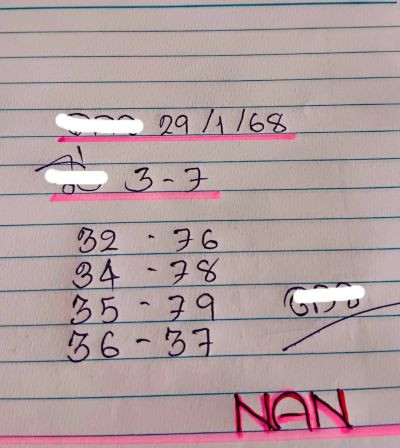 29/1/68
3-7
32 - 76
34 - 78
35 - 79
36 - 37
NAN